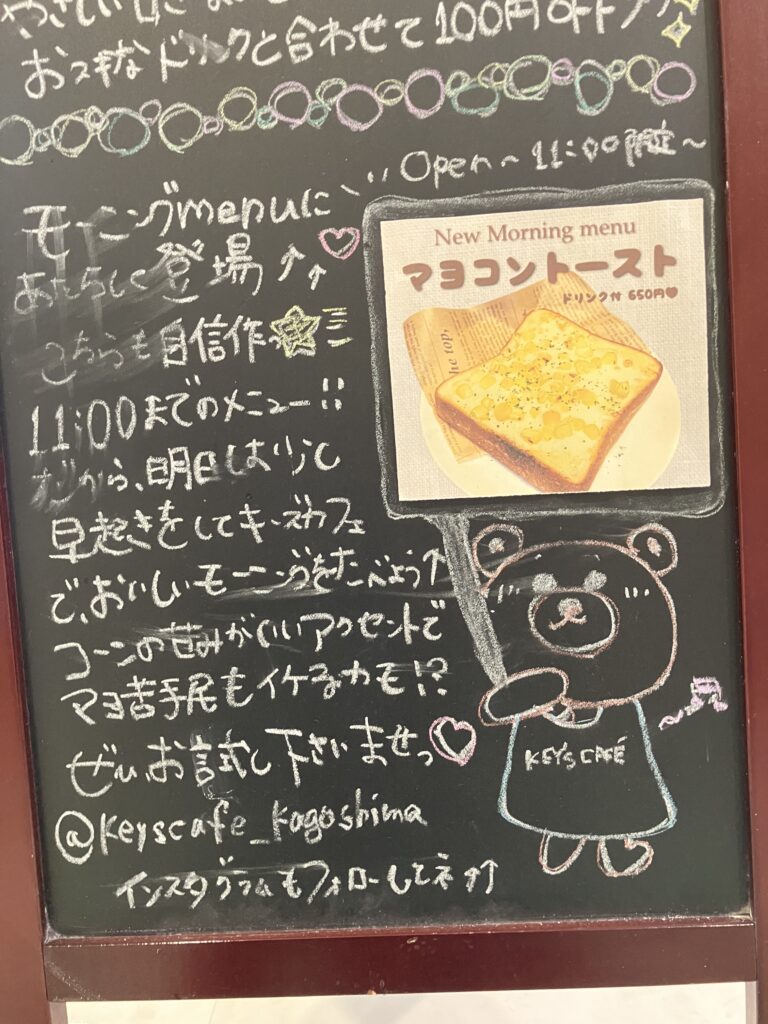 お好きなドリンクと合わせて100円OFF♪♪
Open～11:00限定～
モーニングmenuに
あたらしく登場↑↑♡
こちらも自信作っ☆
11:00までのメニュー!!
だから、明日は少し
早起きをしてキーズカフェ
で、おいしいモーニングをたべよう↑
コーンの甘みがいいアクセントで
マヨ苦手民もイケるカモ!?
ぜひ、お試し下さいませっ♡
@keyscafe_kagoshima
インスタグラムもフォローしてネ↑↑
New Morning menu
マヨコントースト
ドリンク付 650円♥
the top,
KEY'S CAFÉ